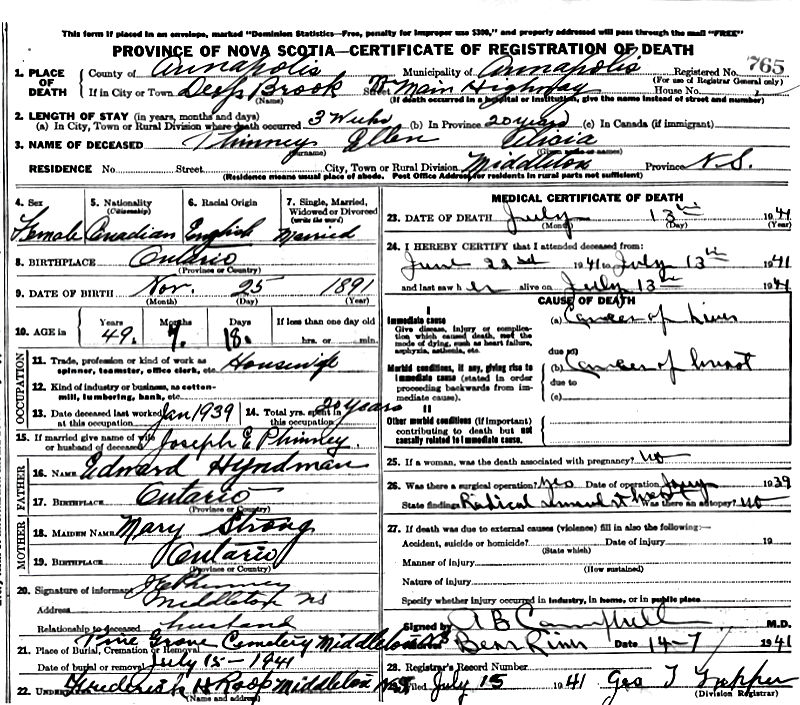 This form if placed in an envelope, marked "Dominion Statistics—Free, penalty for improper use $300," and properly addressed will pass through the mail "FREE"
PROVINCE OF NOVA SCOTIA—CERTIFICATE OF REGISTRATION OF DEATH
1. PLACE OF DEATH County of Annapolis Municipality of Annapolis Registered No. 765
(For use of Registrar General only)
If in City or Town Deep Brook Street Main Highway House No.
(Name) (If death occurred in a hospital or institution, give the name instead of street and number)
2. LENGTH OF STAY (in years, months and days)
(a) In City, Town or Rural Division where death occurred 3 Weeks (b) In Province 20 years (c) In Canada (if immigrant)
3. NAME OF DECEASED Phinney Ellen
(Surname) (Given name or names)
RESIDENCE No. Street City, Town or Rural Division Middleton Province N.S.
(Residence means usual place of abode. Post Office Address for residents in rural parts not sufficient)
4. Sex 5. Nationality (Citizenship) 6. Racial Origin 7. Single, Married, Widowed or Divorced (write the word)
Female Canadian English Married
8. BIRTHPLACE Ontario
(Province or Country)
9. DATE OF BIRTH Nov. 25 1891
(Month) (Day) (Year)
10. AGE in Years Months Days If less than one day old
49. 7. 18. hrs. or min.
OCCUPATION
11. Trade, profession or kind of work as spinner, teamster, office clerk, etc. Housewife
12. Kind of industry or business, as cotton-mill, lumbering, bank, etc.
13. Date deceased last worked at this occupation Jan 1939 14. Total yrs. spent in this occupation 20 years
15. If married give name of wife or husband of deceased Joseph E Phinney
FATHER
16. NAME Edward Hyndman
17. BIRTHPLACE Ontario
(Province or Country)
MOTHER
18. MAIDEN NAME Mary Strong
19. BIRTHPLACE Ontario
(Province or Country)
20. Signature of informant J E Phinney
Address Middleton NS
Relationship to deceased husband
21. Place of Burial, Cremation or Removal Pine Grove Cemetery Middleton NS
Date of burial or removal July 15—1941
22. UNDERTAKER Frederick H Roop Middleton N.S.
(Name and address)
MEDICAL CERTIFICATE OF DEATH
23. DATE OF DEATH July 13th 1941
(Month) (Day) (Year)
24. I HEREBY CERTIFY that I attended deceased from:
June 22nd 1941 to July 13th 1941
and last saw her alive on July 13th 1941
CAUSE OF DEATH
I
Immediate cause (a) Cancer of Liver
Give disease, injury or complication which caused death, not the mode of dying, such as heart failure, asphyxia, asthenia, etc. due to
Morbid conditions, if any, giving rise to immediate cause (stated in order proceeding backwards from immediate cause). (b) Cancer of breast
due to
(c)
II
Other morbid conditions (if important) contributing to death but not causally related to immediate cause.
25. If a woman, was the death associated with pregnancy? no
26. Was there a surgical operation? Yes Date of operation 1939
State findings Radical removal breast Was there an autopsy? no
27. If death was due to external causes (violence) fill in also the following:—
Accident, suicide or homicide? Date of injury 19
(State which)
Manner of injury
(How sustained)
Nature of injury
Specify whether injury occurred in industry, in home, or in public place
Signed by A B Campbell M.D.
Bear River Date 14-7/ 1941
28. Registrar's Record Number
Filed July 15 1941 Geo T Tupper
(Division Registrar)